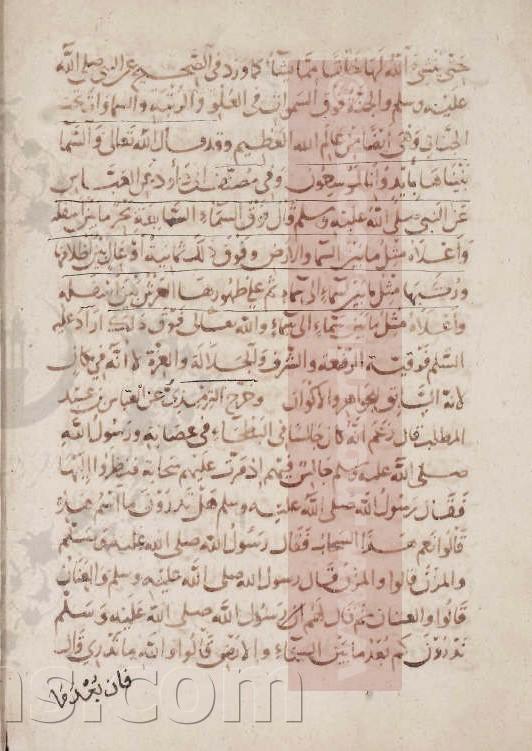 حتى ينشئ الله لها خلقا مما يشاء كما ورد في الصحيح عن النبي صلى الله
عليه وسلم والجنة فوق السموات في العلو والرتبة والسموات تحت
الجنان وهي أيضا من عالم الله العظيم وقد قال الله تعالى والسما
بنيناها بايد وانا لموسعون وفي مصنف ابي داود عن العباس
عن النبي صلى الله عليه وسلم قال فوق السماء السابعة بحر ما بين اسفله
واعلاه مثل ما بين السما والارض وفوق ذلك ثمانية اوعال بين اظلافها
وركبها مثل ما بين سماء الى سماء ثم على ظهورها العرش بين اسفله
واعلاه مثل ما بين سماء الى سماء والله تعالى فوق ذلك اراد عليه
السلم فوقية الرفعة والشرف والجلالة والعزة لا انه في مكان
لانه السابق للجواهر والاكوان وخرج الترمذي عن العباس بن عبد
المطلب قال زعم انه كان جالسا في البطحاء في عصابة ورسول الله
صلى الله عليه وسلم جالس فيهم اذ مرت عليهم سحابة فنظروا اليها
فقال رسول الله صلى الله عليه وسلم هل تدرون ما اسم هذه
قالوا نعم هذا السحاب فقال رسول الله صلى الله عليه وسلم
والمزن قالوا والمزن قال رسول الله صلى الله عليه وسلم والعنان
قالوا والعنان ثم قال لهم رسول الله صلى الله عليه وسلم
تدرون كم بعد ما بين السماء والارض قالوا والله ما ندري قال
فان بعد ما
ns.com